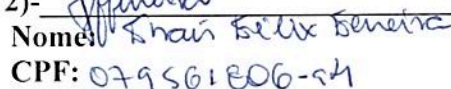 2)-
Nome: Thais Félix Ferreira
CPF: 079561806-94